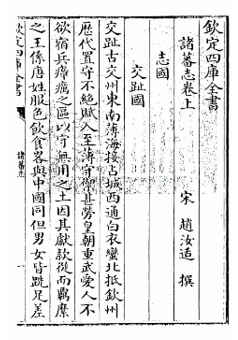 欽定四庫全書
諸蕃志卷上
宋 趙汝适 撰
志國
交趾國
交趾古交州東南薄海接占城西通白衣蠻北抵欽州
歷代置守不絕賦入至薄守禦甚勞皇朝重武愛人不
欲宿兵瘴癘之區以守無用之土因其獻款從而羈縻
之王係唐姓服色飲食畧與中國同但男女皆跣足差
欽定四庫全書
諸蕃志